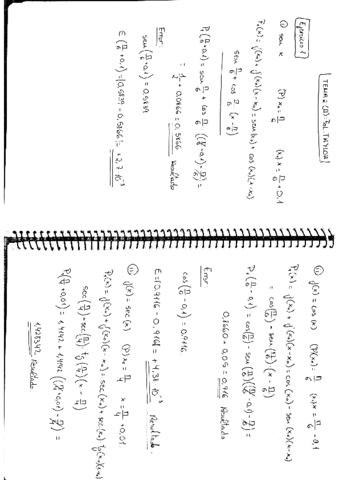 TEMA 2 (II): Pol. TAYLOR
Ejercicio 1
i) sen x (P) x₀ = π/6 (x₁) x = π/6 + 0,1
P₁(x) = f(x₀) + f'(x₀)(x-x₀) = sen(x₀) + cos(x₀)(x-x₀)
sen π/6 + cos π/6 (x - π/6)
P₁(π/6 + 0,1) = sen π/6 + cos π/6 ((π/6 + 0,1) - π/6) =
= 1/2 + 0,0866 = 0,5866 Resultado
Error:
sen(π/6 + 0,1) = 0,5839
E(π/6 + 0,1) = |0,5839 - 0,5866| = +2,7·10⁻³
ii) f(x) = cos(x) (P) x₀ = π/6 (x₁) x = π/6 - 0,1
P₁(x) = f(x₀) + f'(x₀)(x-x₀) = cos(x₀) - sen(x₀)(x-x₀)
= cos(π/6) - sen(π/6)(x - π/6)
P₁(π/6 - 0,1) = cos(π/6) - sen(π/6)((π/6 - 0,1) - π/6) =
0,8660 + 0,05 = 0,916 Resultado
Error
cos(π/6 - 0,1) = 0,9116
E = |0,9116 - 0,9164| = +4,38·10⁻³ Resultado.
iii) f(x) = sec(x) (P) x₀ = π/4 x = π/4 + 0,01.
P₁(x) = f(x₀) + f'(x₀)(x-x₀) = sec(x₀) + sec(x₀)·tg(x₀)(x-x₀)
sec(π/4) + sec(π/4)·tg(π/4)(x - π/4)
P(π/4 + 0,01) = 1,4142 + 1,4142((π/4 + 0,01) - π/4) =
1,428342 Resultado